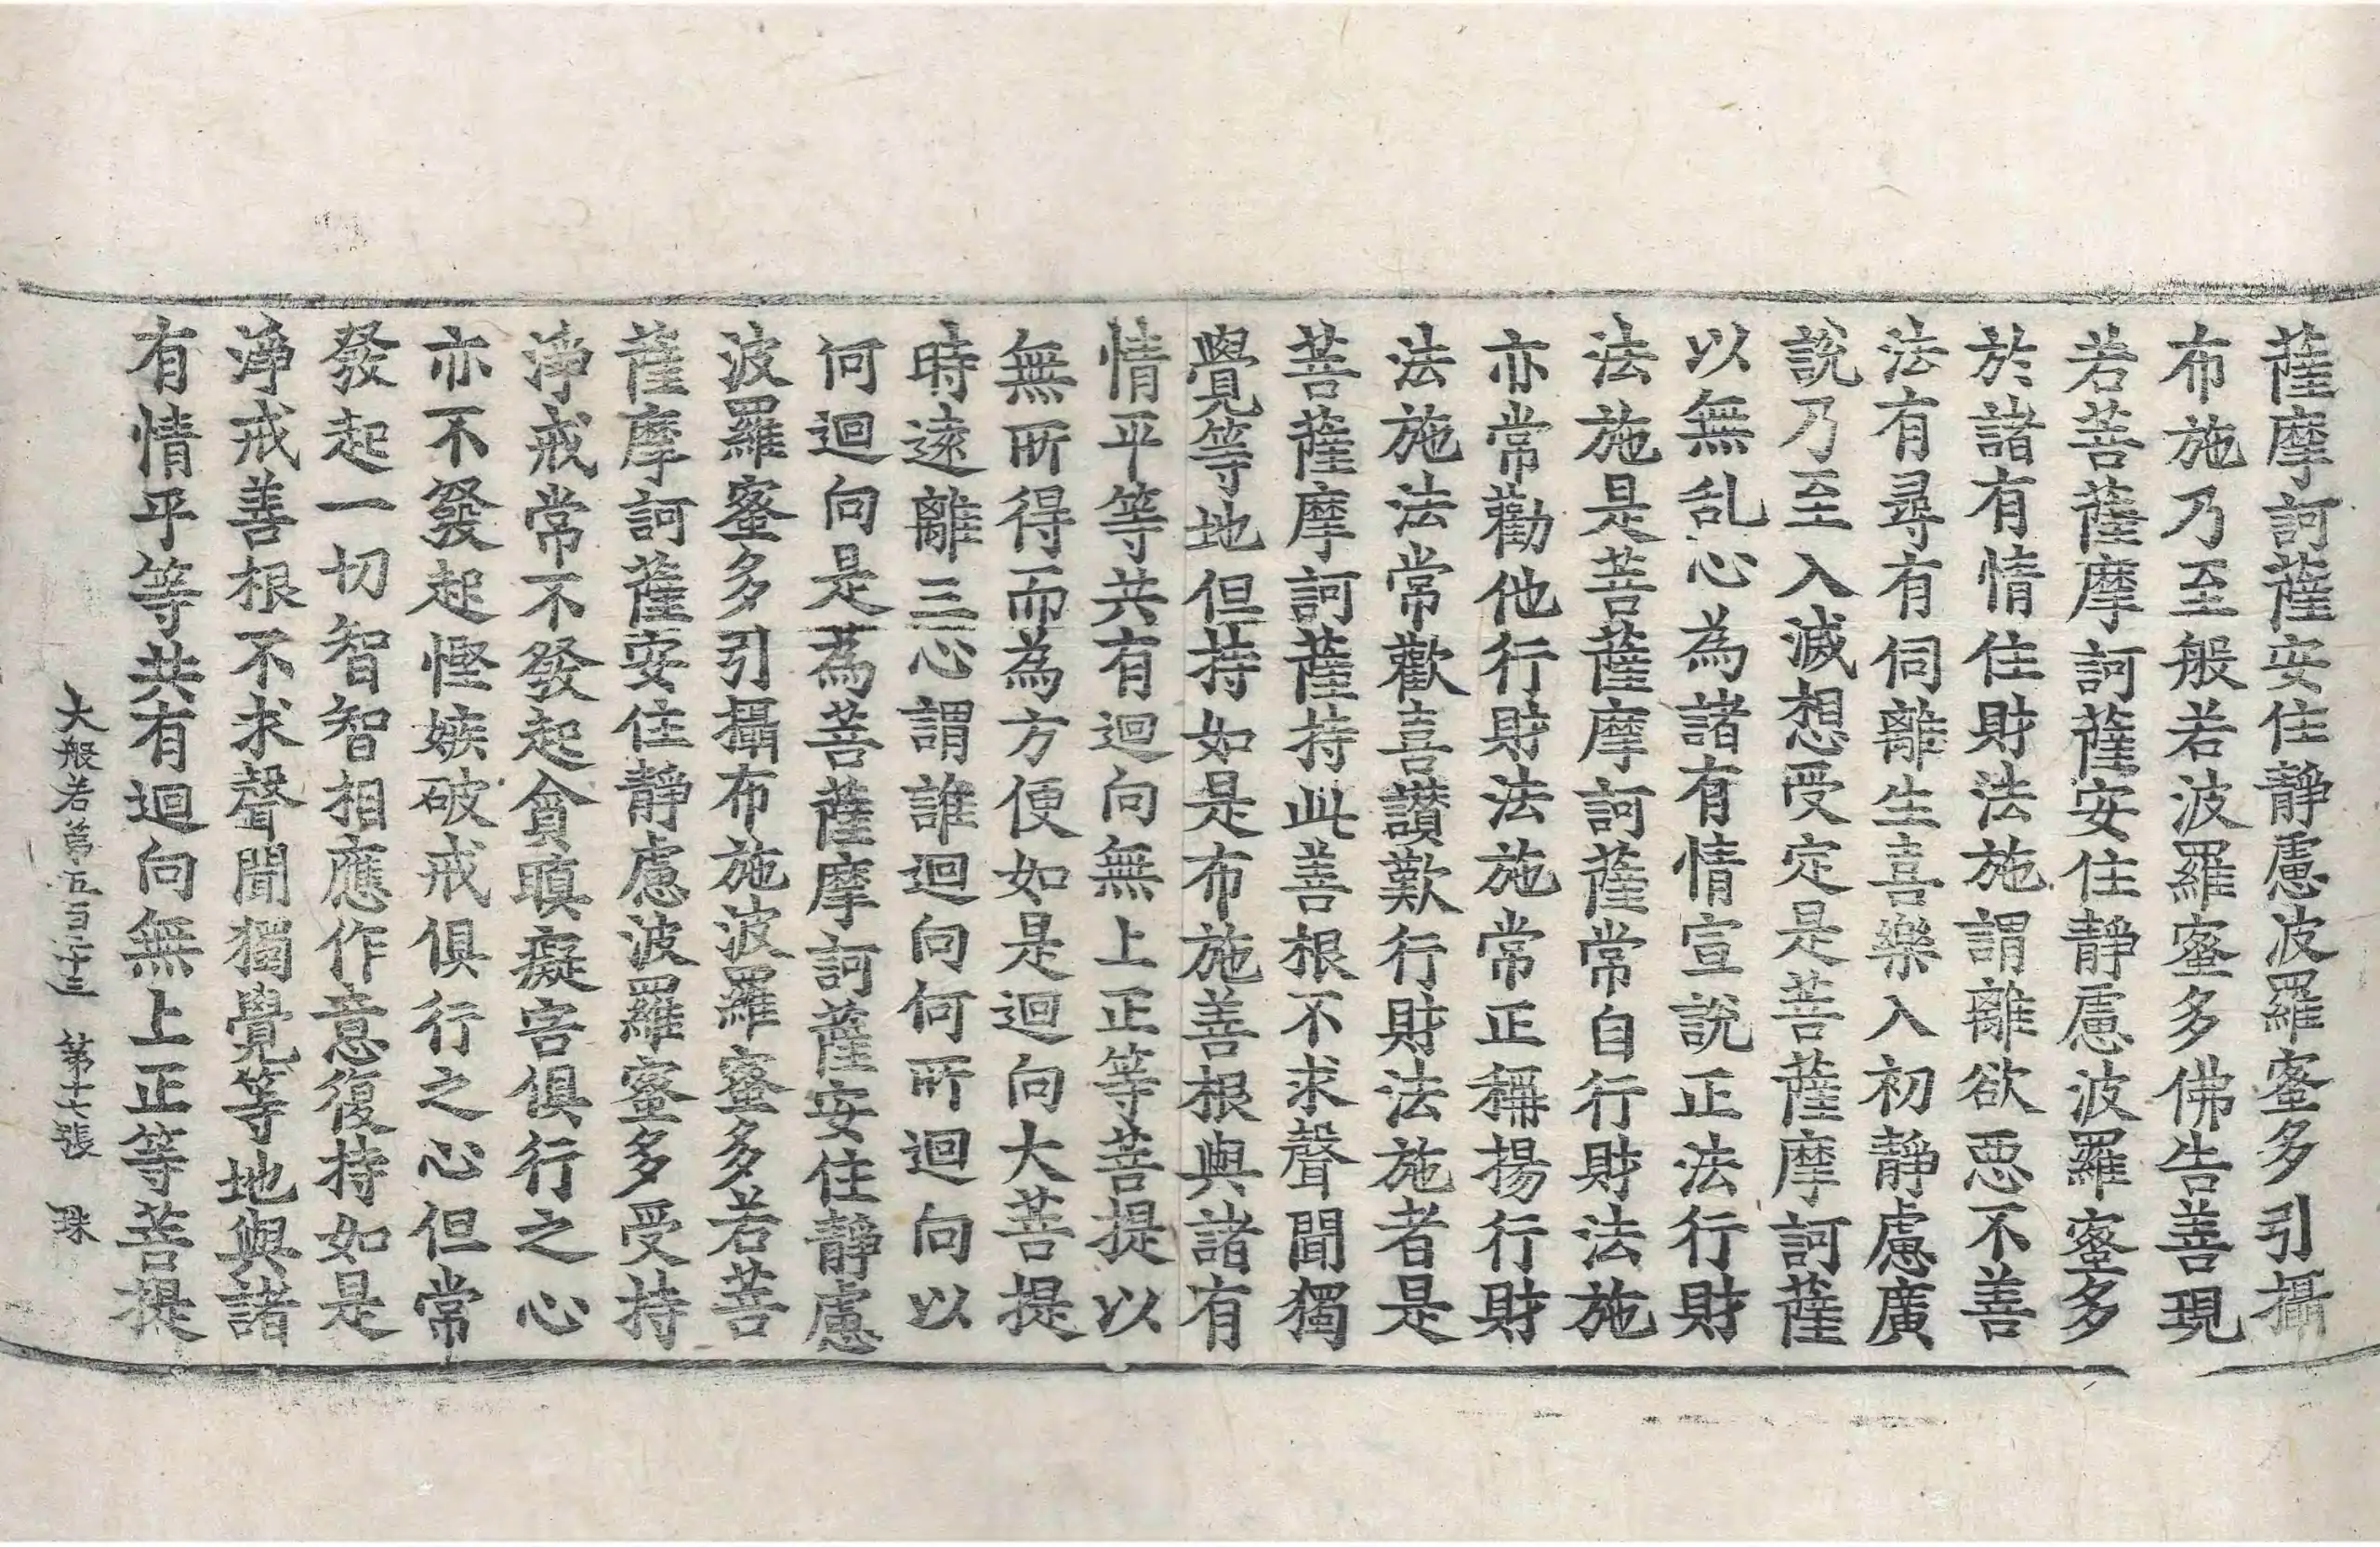 薩摩訶薩安住靜慮波羅蜜多引攝
布施乃至般若波羅蜜多佛告善現
若菩薩摩訶薩安住靜慮波羅蜜多
於諸有情住財法施謂離欲惡不善
法有尋有伺離生喜樂入初靜慮廣
說乃至入滅想受定是菩薩摩訶薩
以無乱心為諸有情宣說正法行財
法施是菩薩摩訶薩常自行財法施
亦常勸他行財法施常正稱揚行財
法施法常歡喜讚歎行財法施者是
菩薩摩訶薩持此善根不求聲聞獨
覺等地但持如是布施善根與諸有
情平等共有迴向無上正等菩提以
無所得而為方便如是迴向大菩提
時遠離三心謂誰迴向何所迴向以
何迴向是為菩薩摩訶薩安住靜慮
波羅蜜多引攝布施波羅蜜多若菩
薩摩訶薩安住靜慮波羅蜜多受持
淨戒常不發起貪瞋癡害俱行之心
亦不發起慳嫉破戒俱行之心但常
發起一切智智相應作意復持如是
淨戒善根不求聲聞獨覺等地與諸
有情平等共有迴向無上正等菩提
大般若第五百二十三 第十七張 珠